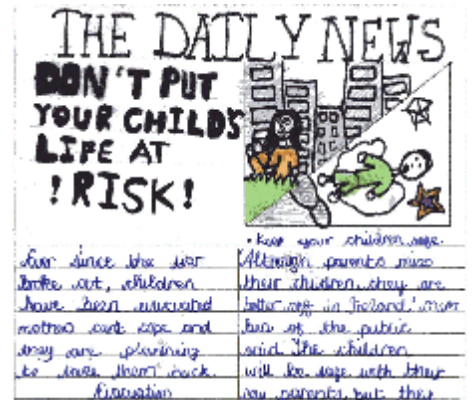 THE DAILY NEWS
DON'T PUT
YOUR CHILD'S
LIFE AT
! RISK!
Ever since the war
broke out, children
have been evacuated
mothers can't cope and
they are planning
to take them back.
Evacuation
• Keep your children safe.
Although parents miss
their children, they are
better off in Ireland.'
of the public
said. The children
will be safe with they
parents, but they